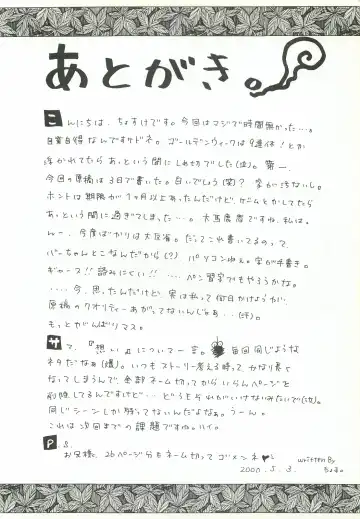 あとがき。
こんにちは、ちょすけです。今回はマジで時間無かった…。
自業自得なんですケドネ。ゴールデンウィークは9連休!とか
浮かれてたらあっという間にしめ切りでした(泣)。第一、
今回の原稿は3日で書いた。白いでしょう(笑)? 字が汚ないし。
ホントは期限が1ヶ月以上あったんだけど、ゲームとかしてたら
あっという間に過ぎてしまった…。大馬鹿者ですね、私は。
んー、今度ばかりは大反省。だってこれ書いてるのって、
パーちゃんとこなんだから(?) パソコンねぇ。字が手書き。
ギャース!!読みにくい!! ……ペン習字でもやろうかな。
……今、思ったんだけど、実は私って何日かけようが
原稿のクオリティーあがってないんじゃあ…(汗)。
もっとがんばりマス。
さて、『想い』について一言。 毎回同じような
ネタだなぁ(爆)。いつもストーリー考える時って、かなり長く
なってしまうんで、全部ネーム切ってからいらんページを
削除してるんですけど…どうも それがいけないみたいで(泣)。
同じシーンしか残ってないんだよなぁ。うーん。
これは次回までの課題ですね。ハイ。
P.S.
お兄様、26ページ分もネーム切ってゴメンネ♥
written By
2000.5.3. ちょす。